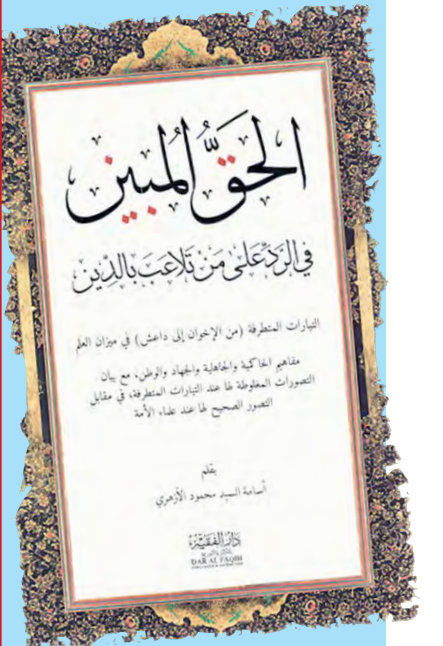 الحَقُّ المُبين
في الرَّدِّ عَلى مَن تَلاعَبَ بالدِّين
التيارات المتطرفة (من الإخوان إلى داعش) في ميزان العلم
مفاهيم الحاكمية والجاهلية والجهاد والوطن، مع بيان
التصورات المغلوطة لها عند التيارات المتطرفة، في مقابل
التصور الصحيح لها عند علماء الأمة
بقلم
أسامة السيد محمود الأزهري
دار الفقيه
DAR AL FAQIH